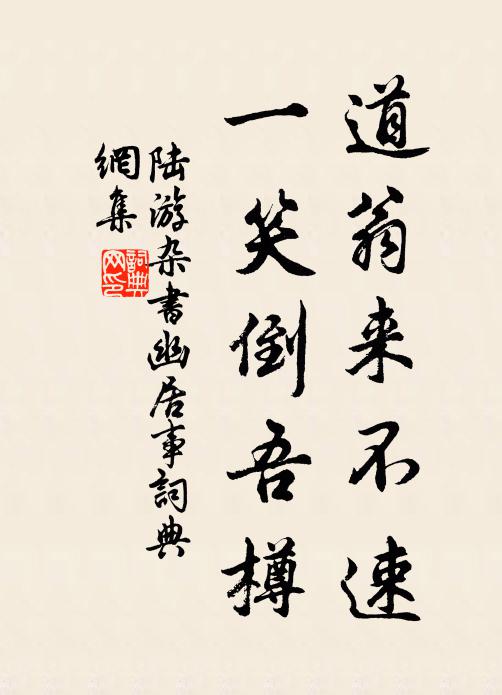 道翁来不速
一笑倒吾樽
陆游杂書幽居事詞典
網集
詞典
网印